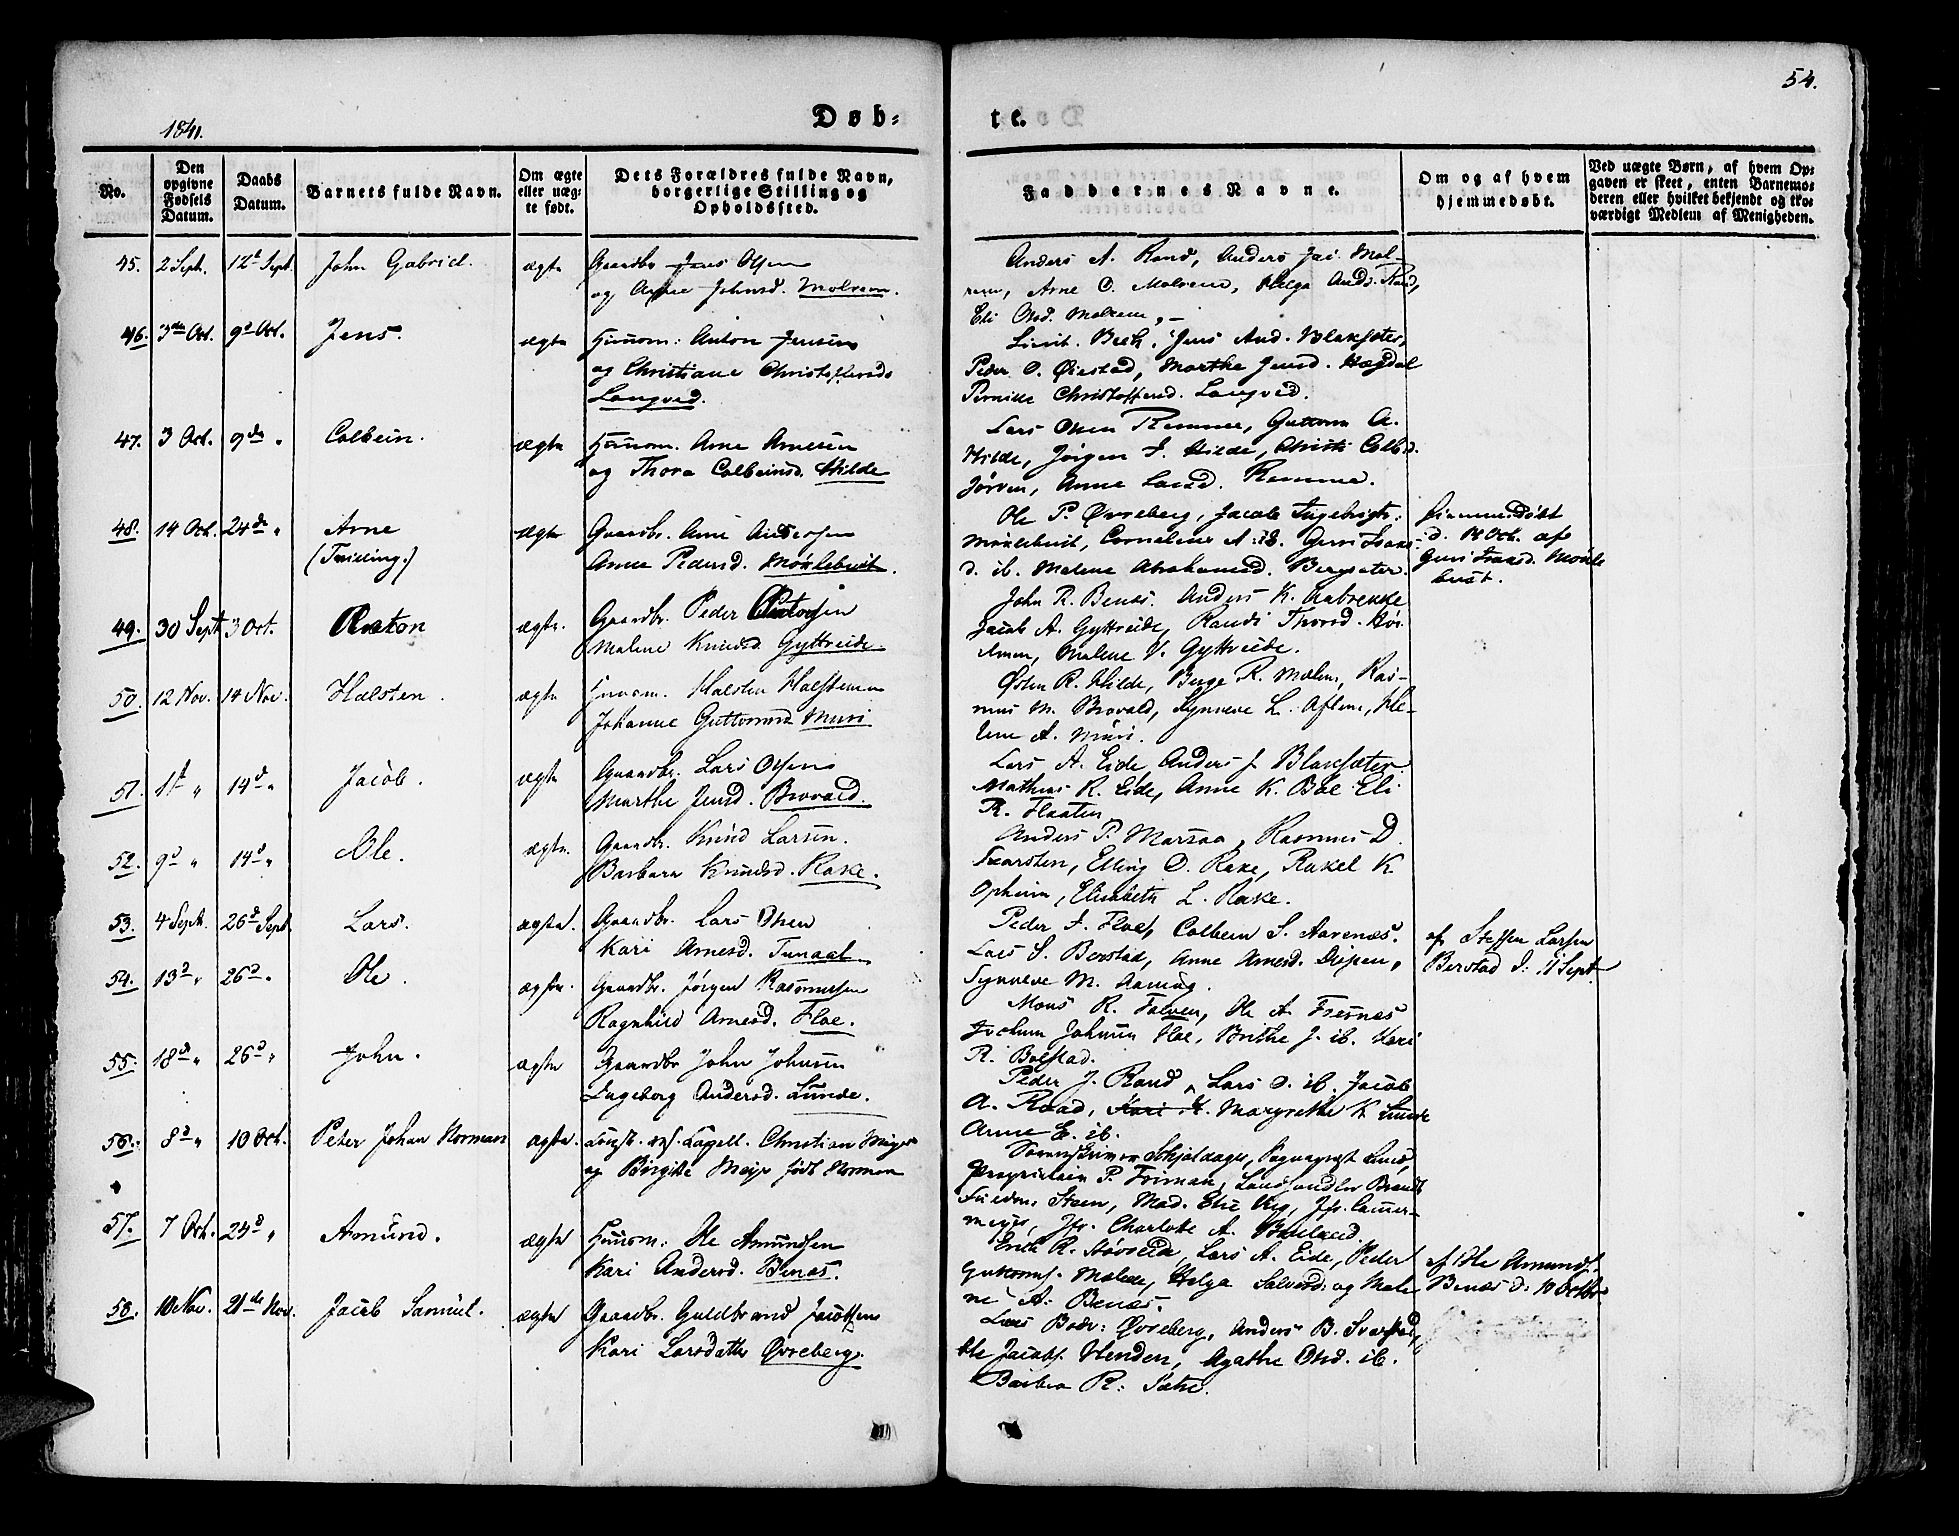 54.
1841.
Døb-
te.
No.
Den opgivne Fødsels Datum.
Daabs Datum.
Barnets fulde Navn.
Om ægte eller uægte født.
Dets Forældres fulde Navn, borgerlige Stilling og Opholdssted.
Faddernes Navne.
Om og af hvem hjemmedøbt.
Ved uægte Børn, af hvem Opgaven er skeet, enten Barnemoderen eller hvilket bekjendt og troværdigt Medlem af Menigheden.
45. 2 Sept. 12d Sept. John Gabriel. ægte Gaardbr. Jens Olsen
og Anne Johnsd. Molvem.
Anders A. Rand, Anders Jac. Mol-
rem, Arne O. Molrem, Helga Andd. Rand,
Eli Olsd. Molrem.
46. 3die Oct. 9d Oct. Jens. ægte Huusm: Anton Jensen
og Christiane Christophersd.
Langved.
Lieut. Bech, Jens And. Blaksæter,
Peder O. Øiestad, Marthe Jensd. Hægdal
Pernille Christoffersd. Langved.
47. 3 Oct. 9de " Colbein. ægte Huusm. Arne Arnesen
og Thora Colbeinsd. Hilde
Lars Olsen Remme, Guttorm A.
Hilde, Jørgen J. Hilde, Christi Colbd.
Jørven, Anne Larsd. Remme.
48. 14 Oct. 24de " Arne
(Tvilling.) ægte Gaardbr. Arne Andersen
Anne Pedersd. Møklebust.
Ole P. Øvreberg, Jacob Ingebrigts:
Møklebust, Cornelius A. ib. Guri Isaks-
d. ib. Malene Abrahamsd. Bergsæter.
hjemmedøbt
d. 14 Oct. af
Guri Isaksd. Møkle
bust.
49. 30 Sept. 3 Oct. Anton ægte. Gaardbr. Peder
Malene Knudsd. Gyttreide.
John R. Benæs. Anders K. Aabrekke
Jacob A. Gyttreide, Randi Thorsd.
Malene V. Gyttreide.
50. 12 Nov. 14 Nov. Halsten. ægte Huusm. Halsten Halstensen
Johanne Guttormsd. Muri
Østen R. Hilde, Berge R. Mælen, Ras-
mus M. Brovald, Synneve L. Aflem, He-
lene A. Muri.
51. 1st " 14d " Jacob. ægte Gaardbr. Lars Olsen
Marthe Jensd. Brovald.
Lars A. Eide, Anders J. Blaksæter.
Mathias R. Eide, Anne K. Bøe Eli
R. Flaaten
52. 9d " 14d " Ole. ægte. Gaardbr. Knud Larsen.
Barbara Knudsd. Rake.
Anders P. Marsaa, Rasmus D.
Skarsten, Elling O. Rake, Rakel K.
Opheim, Elisabeth L. Rake.
53. 4 Sept. 26d Sept. Lars. ægte. Gaardbr. Lars Olsen
Kari Arnesd. Tunaal
Peder J. Floe, Colbein S. Aarenæs.
Lars S. Berstad, Anne Arnesd. Dispen,
Synneve M. Haming.
af Steffen Larsen
Berstad d: 11 Sept
54. 13d " 26d " Ole. ægte. Gaardbr. Jørgen Rasmussen
Ragnhild Arnesd. Floe.
Mons R. Folven, Ole A. Fosnæs
Jochum Johnsen Floe, Brithe J. ib. Kari
R. Bolstad.
55. 18d " 26d " John. ægte Gaardbr John Johnsen
Ingeborg Andersd. Lunde.
Peder J. Rand, Lars O. ib. Jacob
A. Raad, Kari K. Margrethe K. Lunde
Anne E. ib.
56. 8d " 10 Oct. Peter Johan Norman ægte. Const. res. Capell. Christian Meyer
og Birgitte Meyer født Norman
Sorenskriver Schjeldager, Sogneprest Lund,
Proprietair P. Friman, Landhandler Brandt
Steen, Mad. Elie Krog, Jfr. Cammer-
meyer, Jfr. Charlotte A.
57. 7 Oct. 24d " Amund. ægte Huusm: Ole Amundsen
Kari Andersd. Benæs.
Erik R. Løvseide, Lars A. Eide, Peder
Guttormsf. Melede, Helga Salvesd: og Male
ne A. Benæs.
af Ole Amundf.
Benæs d: 10 Octbr
58. 10 Nov. 21de Nov. Jacob Samuel. ægte Gaardbr. Guldbrand Jacobsen
Kari Larsdatter Øvreberg.
Lars Bodv: Øvreberg, Anders B. Svarstad,
Ole Jacobf. Henden, Agathe Olsd. ib.
Barbra R: Sætre.